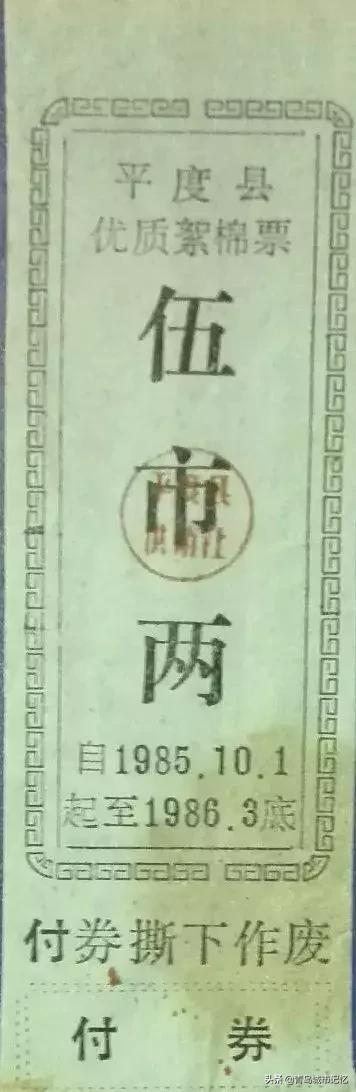 平度县
优质絮棉票
伍
市
平度县
供销社
两
自1985.10.1
起至1986.3底
付券撕下作废
付 券
头条@青岛城市记忆